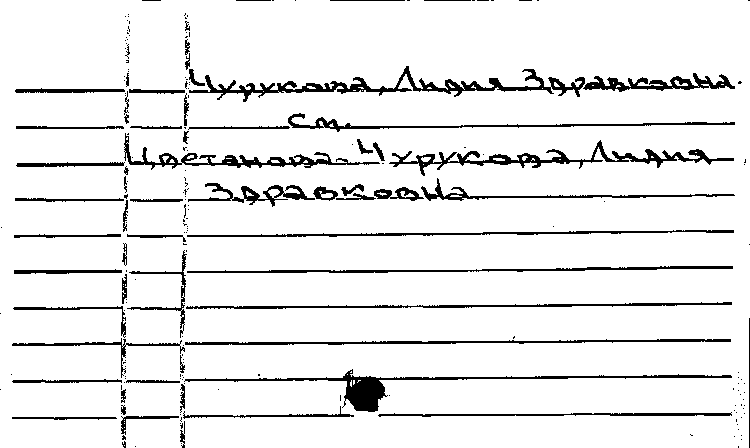 Чурукова, Лидия Здравковна.
см.
Цветанова-Чурукова, Лидия
Здравковна